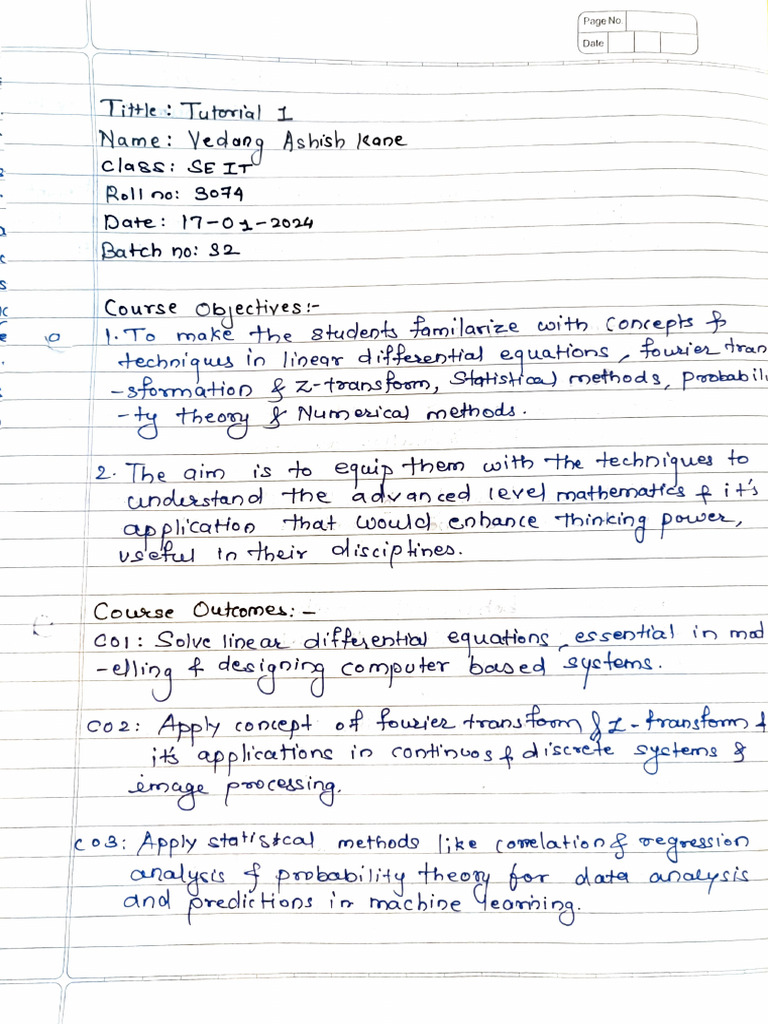 Page No.
Date
Tittle: Tutorial 1
Name: Vedang Ashish Kane
Class: SE IT
Roll no: 3074
Date: 17-01-2024
Batch no: S2
Course Objectives:-
1. To make the students familarize with concepts &
techniques in linear differential equations, fourier tran
-sformation & Z-transform, Statistical methods, probabili
-ty theory & Numerical methods.
2. The aim is to equip them with the techniques to
understand the advanced level mathematics & it's
application that would enhance thinking power,
useful in their disciplines.
Course Outcomes:-
CO1: Solve linear differential equations, essential in mod
-elling & designing computer based systems.
CO2: Apply concept of fourier transform & Z-transform &
it's applications in continuos & discrete systems &
image processing.
CO3: Apply statistcal methods like correlation & regression
analysis & probability theory for data analysis
and predictions in machine learning.